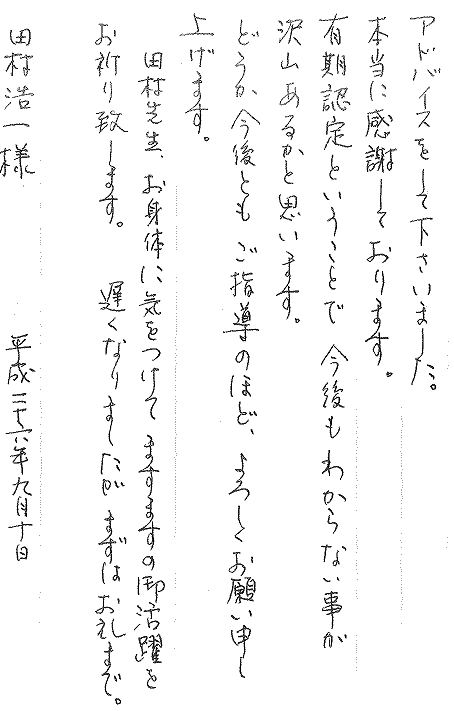 アドバイスをして下さいました。
本当に感謝しております。
有期認定ということで 今後もわからない事が
沢山あるかと思います。
どうか今後とも ご指導のほど、よろしくお願い申し
上げます。
田村先生、お身体に気をつけて ますますの御活躍を
お祈り致します。
遅くなりましたが まずはお礼まで。
平成二十六年九月十日
田村浩一様